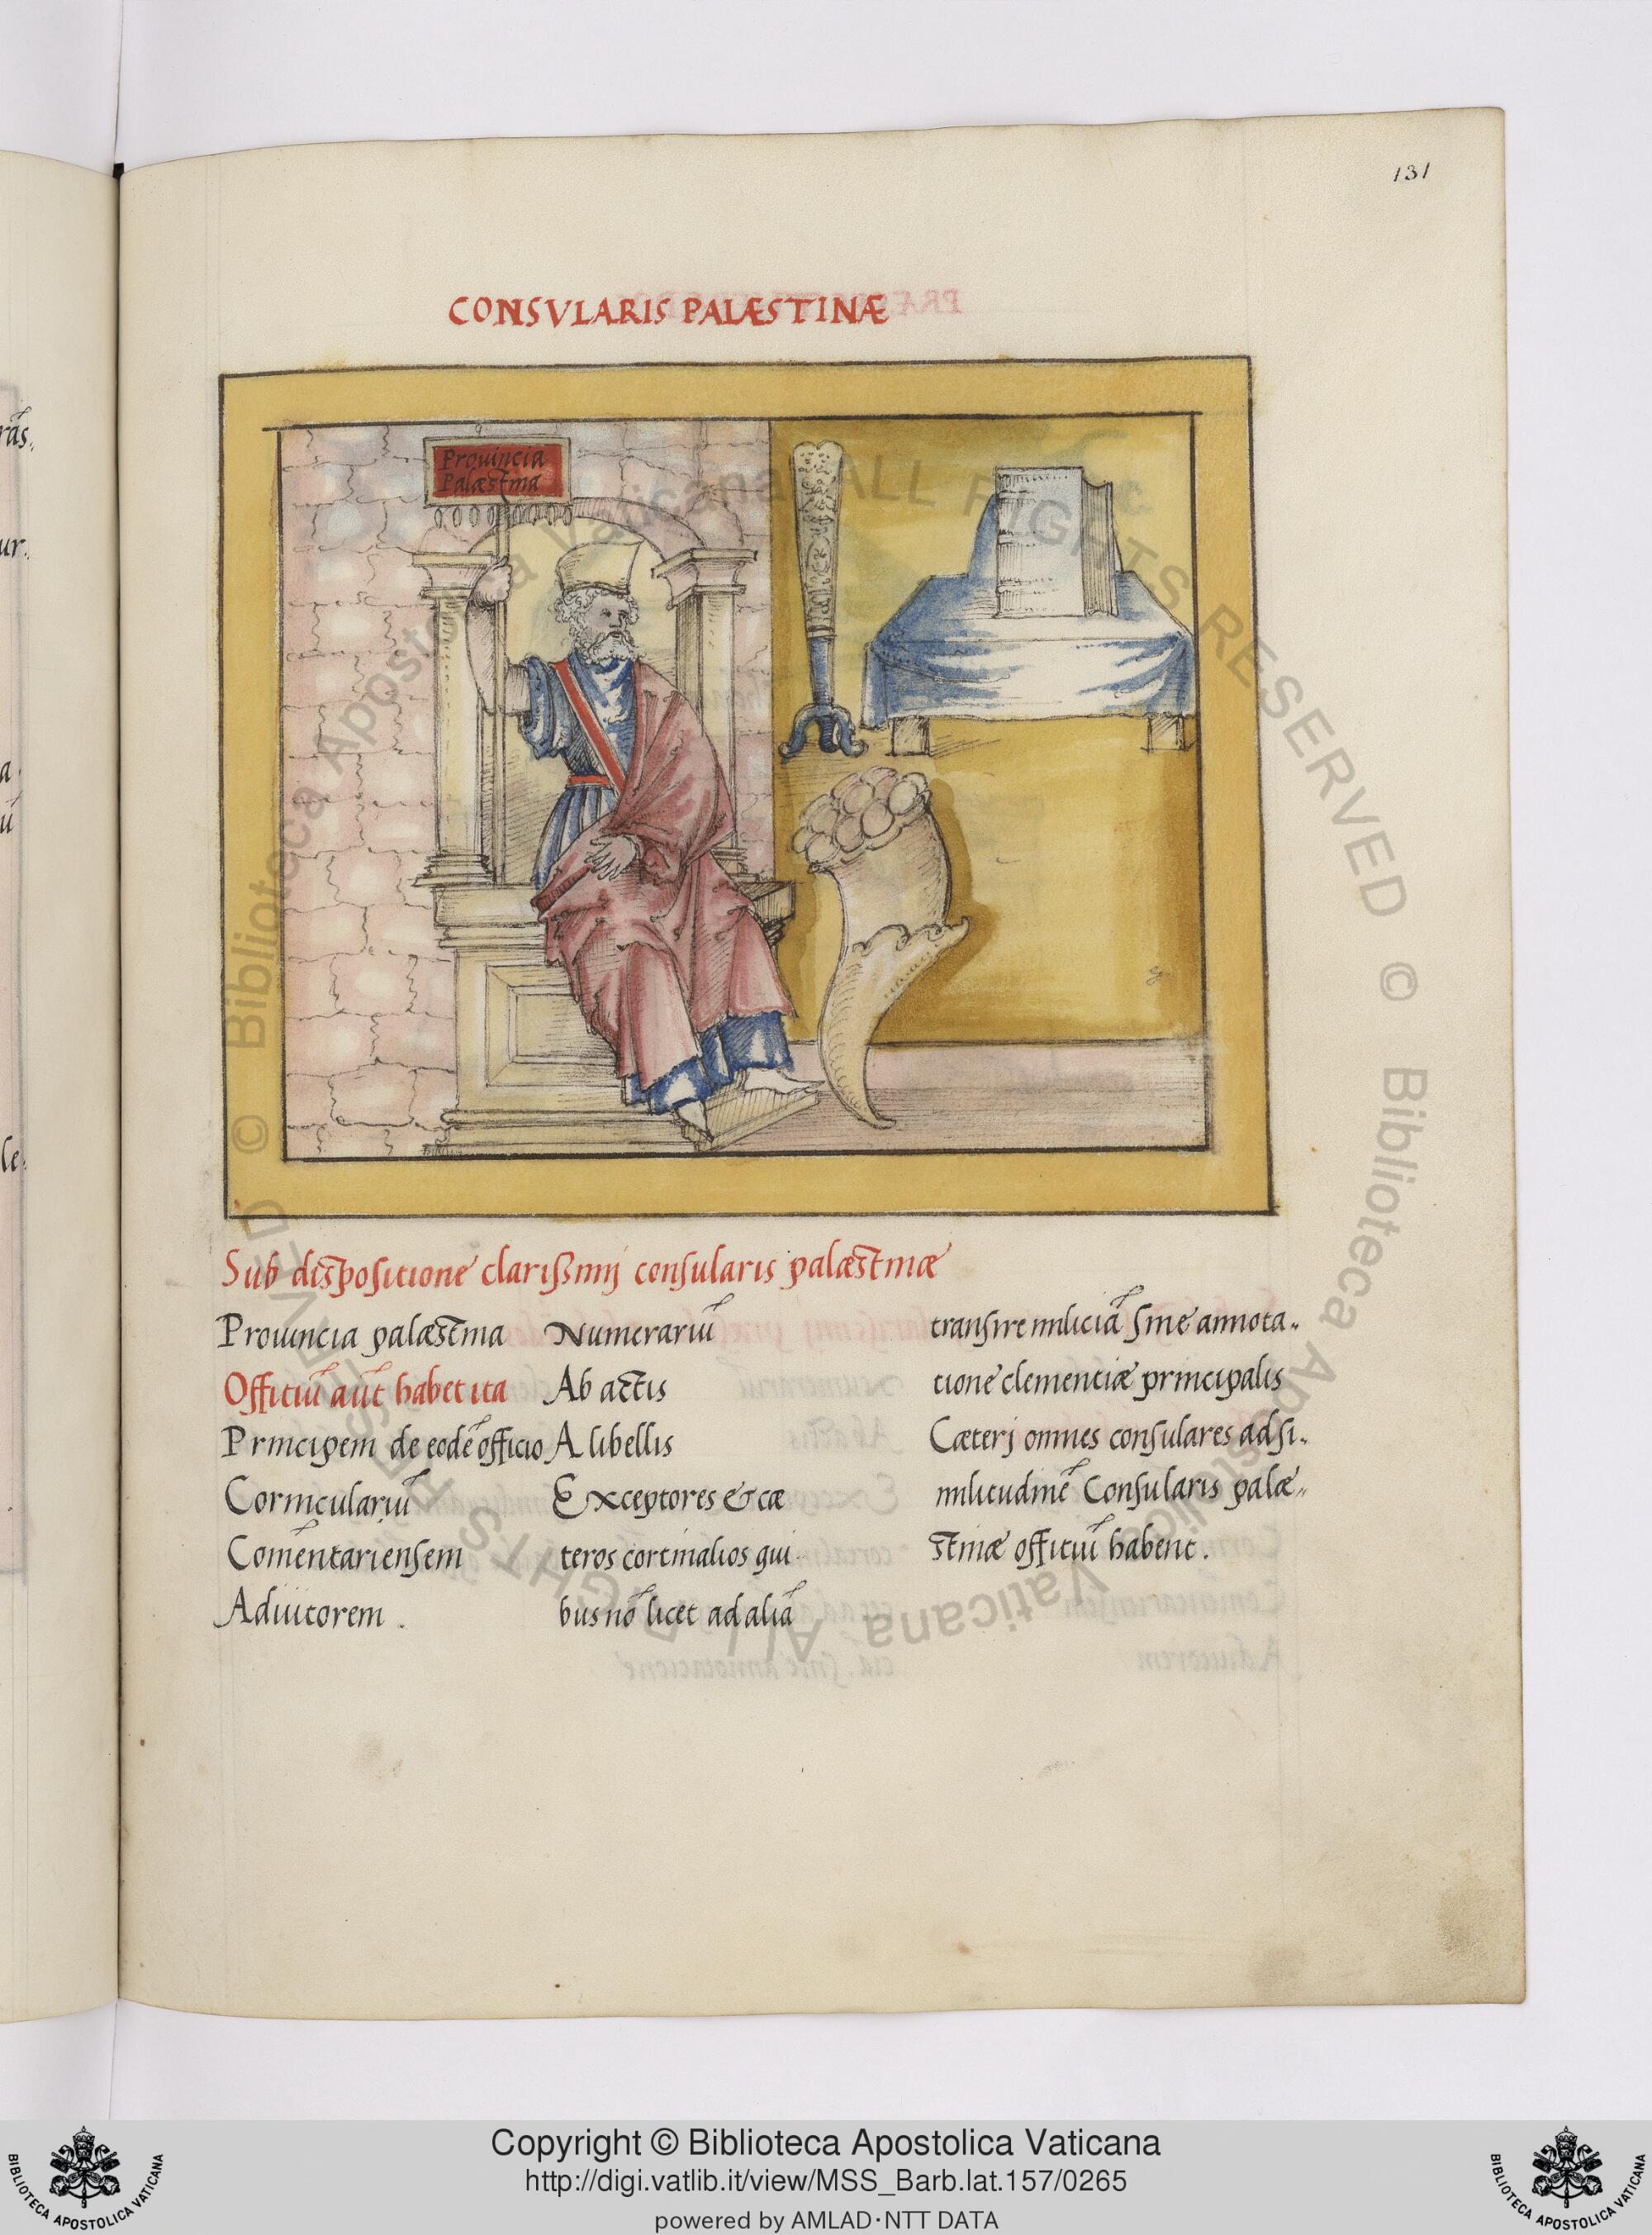 131
CONSVLARIS PALÆSTINÆ
Prouincia
Palæstina
Sub dispositione clarißimij consularis palæstinæ
Prouincia palæstina
Offitiū aūt habet ita
Principem de eodē officio
Corniculariū
Comētariensem
Adiutorem .
Numerariū
Ab actis
A libellis
Exceptores & cæ
teros cortinalios qui
bus nō licet ad aliā
transire miliciā sine annota„
tione clementiæ principalis
Cæterj omnes consulares ad si„
militudinē Consularis palæ„
stinæ offitiū habent .
rās.
ur.
a.
ū
le.
© Biblioteca Apostolica Vaticana ALL RIGHTS RESERVED
© Biblioteca Apostolica Vaticana ALL RIGHTS RESERVED
Copyright © Biblioteca Apostolica Vaticana
http://digi.vatlib.it/view/MSS_Barb.lat.157/0265
powered by AMLAD·NTT DATA
BIBLIOTECA APOSTOLICA VATICANA
BIBLIOTECA APOSTOLICA VATICANA